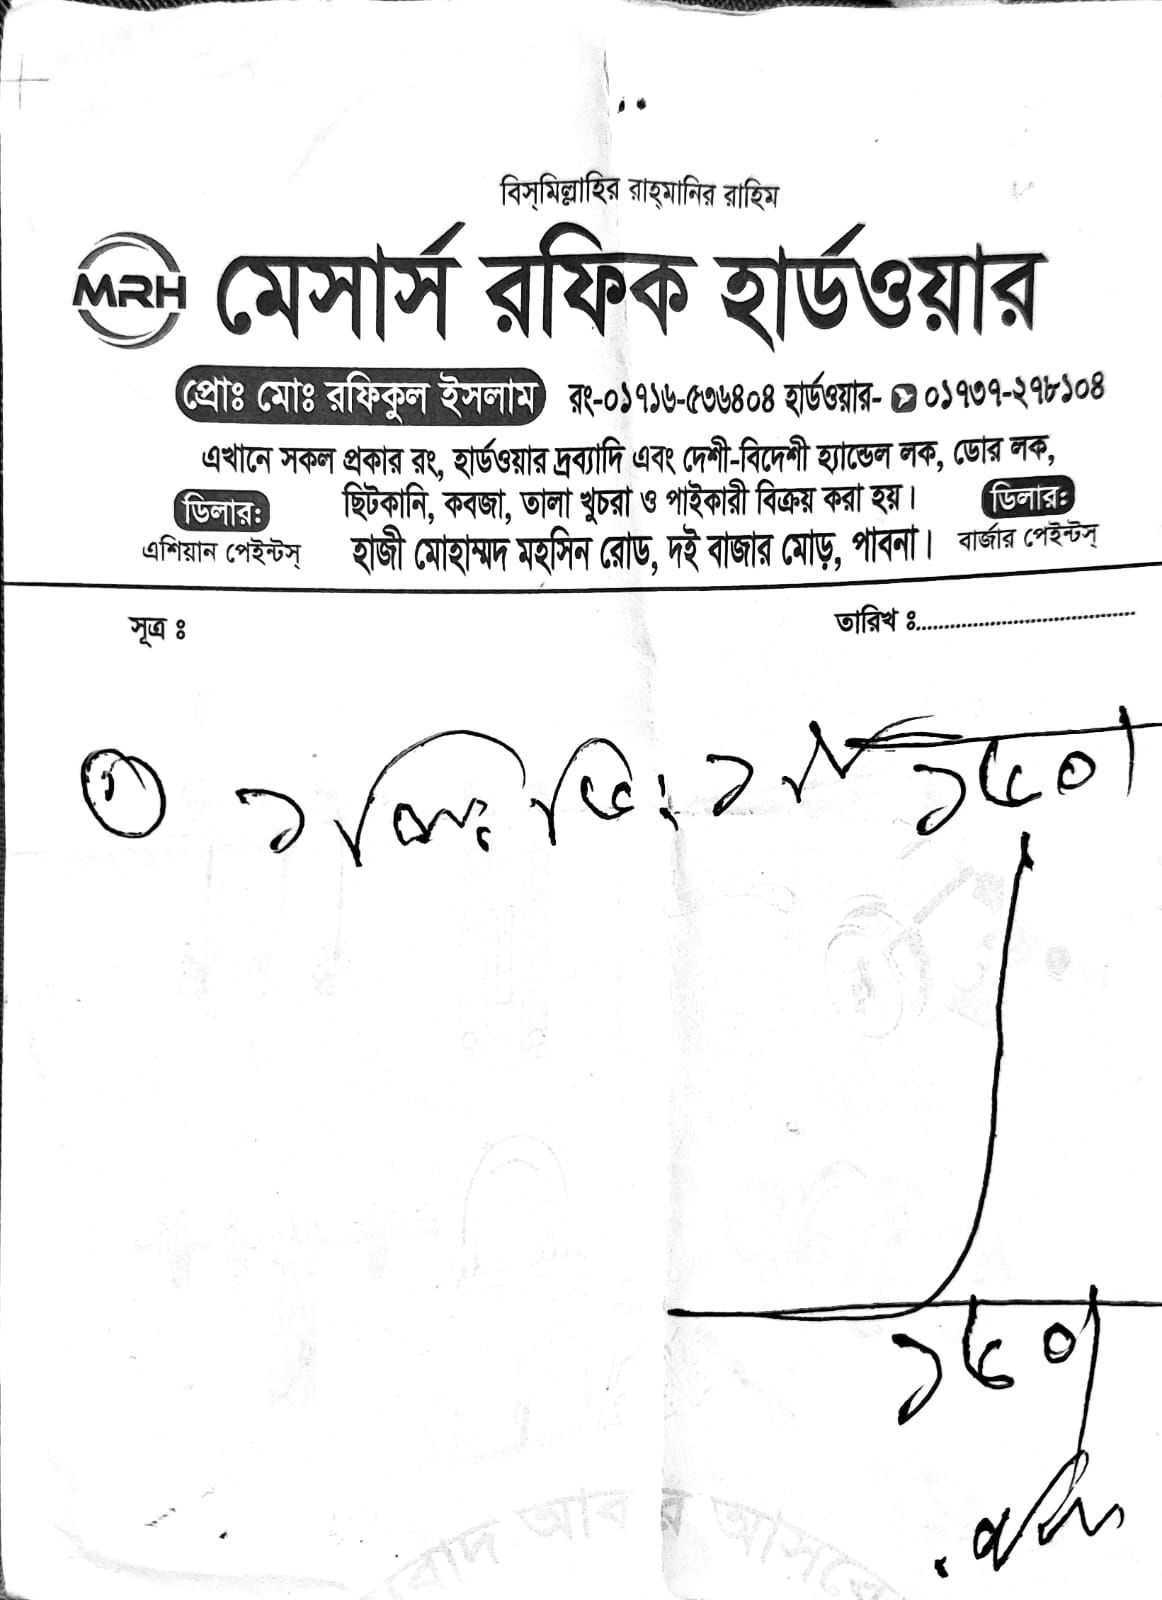 বিস্‌মিল্লাহির রাহ্‌মানির রাহিম
MRH মেসার্স রফিক হার্ডওয়ার
প্রোঃ মোঃ রফিকুল ইসলাম রং-০১৭১৬-৫৩৬৪০৪ হার্ডওয়ার- ০১৭৩৭-২৭৮১০৪
এখানে সকল প্রকার রং, হার্ডওয়ার দ্রব্যাদি এবং দেশী-বিদেশী হ্যান্ডেল লক, ডোর লক,
ছিটকানি, কবজা, তালা খুচরা ও পাইকারী বিক্রয় করা হয়।
ডিলার:
এশিয়ান পেইন্টস্
হাজী মোহাম্মদ মহসিন রোড, দই বাজার মোড়, পাবনা।
ডিলার:
বার্জার পেইন্টস্
সূত্র ঃ
তারিখ ঃ
১ ১৫০
১৫০